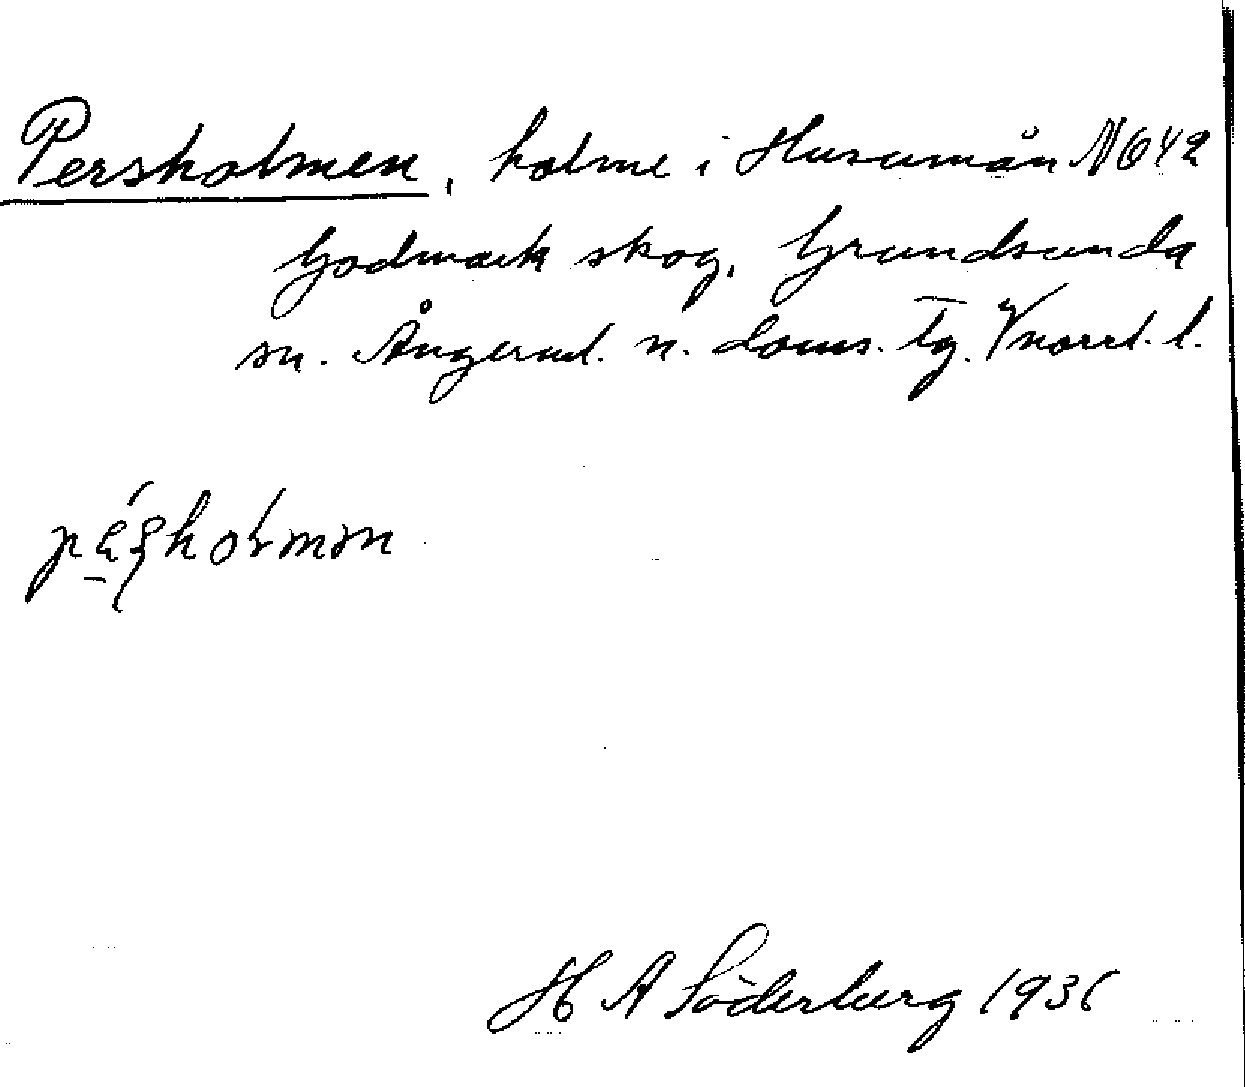 Persholmen, holme i Husumån N642
Godmark skog, Grundsunda
sn. Ångerml. n. doms. tg. Vnorrl. l.
H A Söderberg 1936